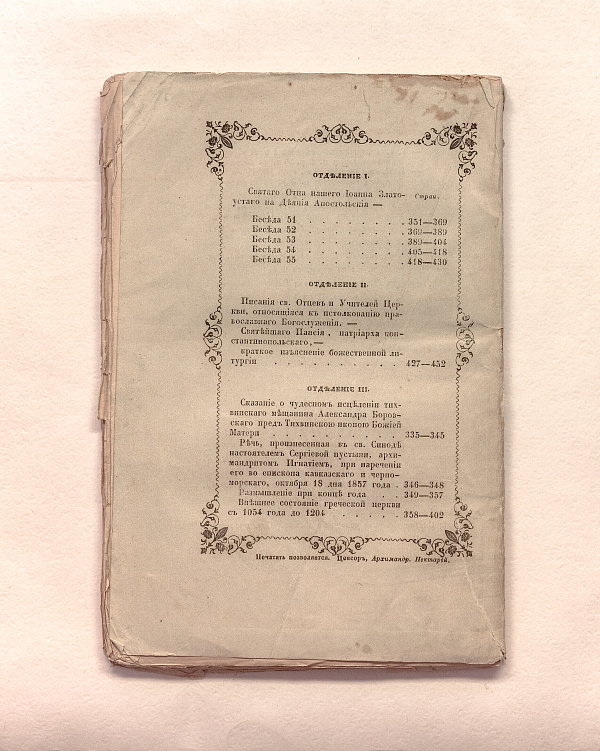 ОТДѢЛЕНІЕ I.
Святаго Отца нашего Іоанна Злато-
устаго на Дѣянія Апостольскія —
Стран.
Бесѣда 51 . . . . . . . . . 351—369
Бесѣда 52 . . . . . . . . . 369—389
Бесѣда 53 . . . . . . . . . 389—404
Бесѣда 54 . . . . . . . . . 405—418
Бесѣда 55 . . . . . . . . . 418—430
ОТДѢЛЕНІЕ II.
Писанія св. Отцевъ и Учителей Цер-
кви, относящіяся къ истолкованію пра-
вославнаго Богослуженія. —
Святѣйшаго Паисія, патріарха кон-
стантинопольскаго,—
краткое изъясненіе божественной ли-
тургіи . . . . . . . . . . 427—452
ОТДѢЛЕНІЕ III.
Сказаніе о чудесномъ исцѣленіи тих-
винскаго мѣщанина Александра Боров-
скаго предъ Тихвинскою иконою Божіей
Матери . . . . . . . . . . 335—345
Рѣчь, произнесенная въ св. Синодѣ
настоятелемъ Сергіевой пустыни, архи-
мандритомъ Игнатіемъ, при нареченіи
его во епископа кавказскаго и черно-
морскаго, октября 18 дня 1857 года . 346—348
Размышленіе при концѣ года . . 349—357
Внѣшнее состояніе греческой церкви
съ 1054 года до 1204 . . . . . . 358—402
Печатать позволяется. Цензоръ, Архимандр. Нектарій.